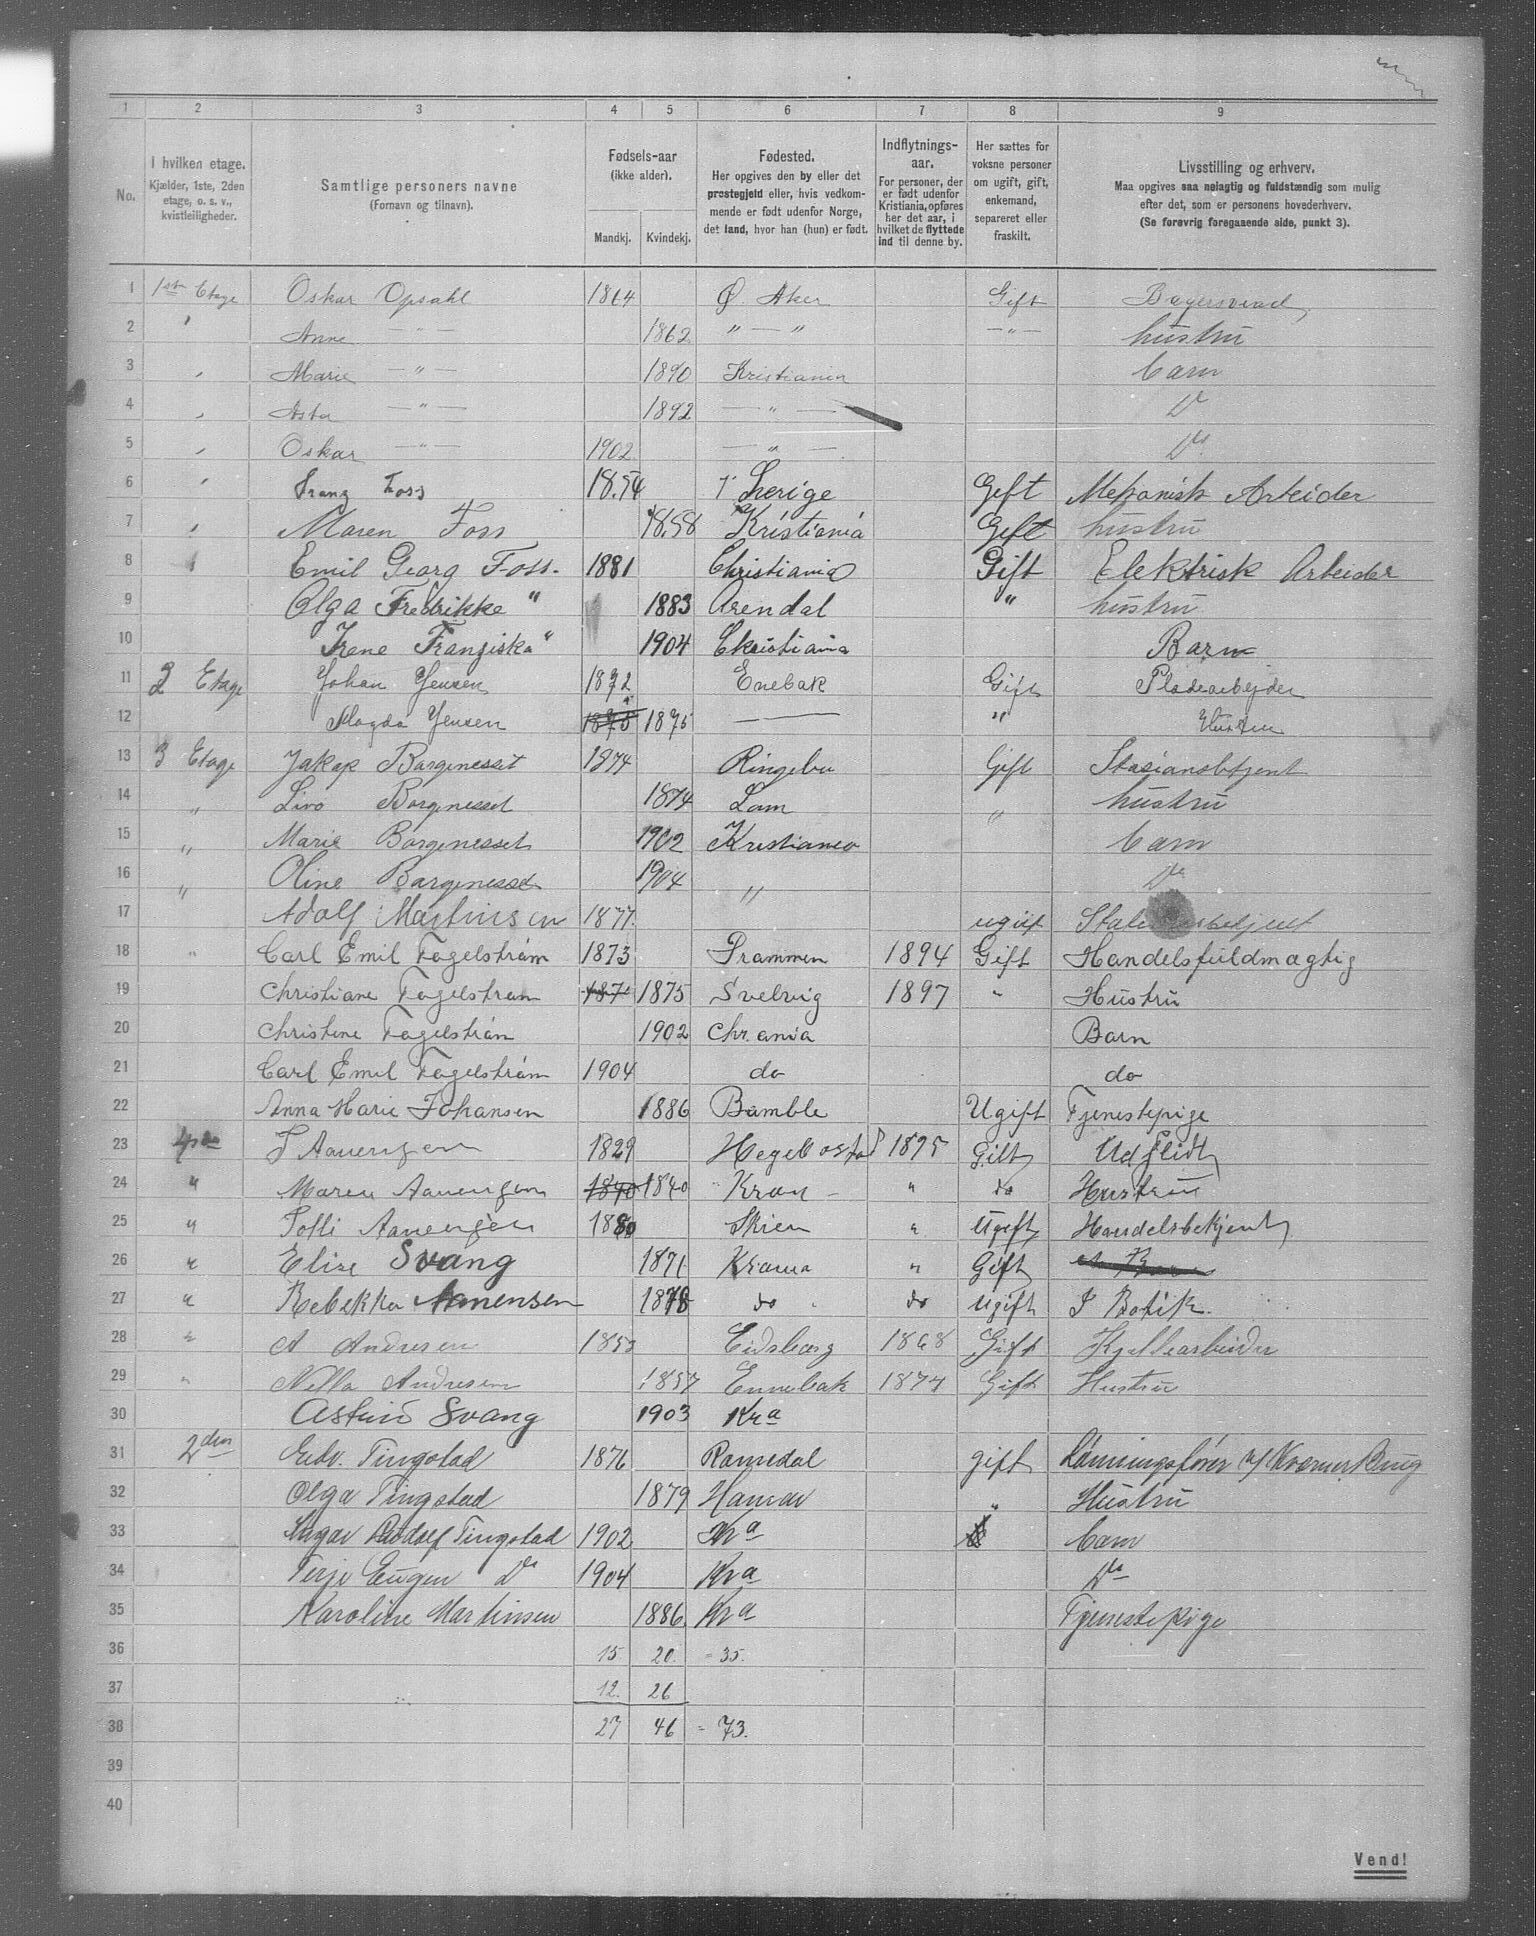 1 2 3 4 5 6 7 8 9
No. | I hvilken etage. Kjælder, 1ste, 2den etage, o. s. v., kvistleiligheder. | Samtlige personers navne (Fornavn og tilnavn). | Fødsels-aar (ikke alder). Mandkj. Kvindekj. | Fødested. Her opgives den by eller det prestegjeld eller, hvis vedkommende er født udenfor Norge, det land, hvor han (hun) er født. | Indflytnings-aar. For personer, der er født udenfor Kristiania, opføres her det aar, i hvilket de flyttede ind til denne by. | Her sættes for voksne personer om ugift, gift, enkemand, separeret eller fraskilt. | Livsstilling og erhverv. Maa opgives saa nøiagtig og fuldstændig som mulig efter det, som er personens hovederhverv. (Se forøvrig foregaaende side, punkt 3).
1 1ste Etage Oskar Opsahl 1864 Ø. Aker Gift Bagersvend
2 " Anne — " — 1862 " — " — " — hustru
3 " Marie — " — 1890 Kristiania barn
4 " Asta — " — 1892 — " — Do
5 " Oskar — " — 1902 — " — Do
6 " Franz Foss 1854 Sverige Gift Mekanisk Arbeider
7 " Maren Foss 1858 Kristiania Gift hustru
8 " Emil Georg Foss. 1881 Christiania Gift Elektrisk Arbeider
9 Olga Fredrikke " 1883 Arendal " hustru
10 Irene Franziska " 1904 Christiania Barn
11 2 Etage Johan Jensen 1872 Enebak Gift Pladearbejder
12 Magda Jensen 1875 1875 — " Hustru
13 3 Etage Jakop Bargenesset 1874 Ringebu Gift Stasionsbetjent
14 " Livo Borgenesset 1874 Lom " hustru
15 " Marie Borgenesset 1902 Kristiania barn
16 " Oline Borgenesset 1904 " Do
17 Adolf Martinsen 1877. ugift
18 " Carl Emil Fagelstrøm 1873 Drammen 1894 Gift Handelsfuldmægtig
19 Christiane Fagelstrøm 1875 Svelvig 1897 " Hustru
20 Christine Fagelstrøm 1902 Chr.ania Barn
21 Carl Emil Fagelstrøm 1904 do do
22 Anna Marie Johansen 1886 Bamble Ugift Tjenestepige
23 4de 1829 Hegebostad 1895 Gift Udslidt
24 " Maren Aanensen 1840 1840 Kran " do Hustru
25 " Aanensen 1880 Skien " Ugift Handelsbetjent
26 " Elise Svang 1871 Krania " Gift
27 " Rebekka Aanensen 1878 do do Ugift I Botik.
28 " A Andresen 1853 Eidsberg 1868 Gift
29 " Nella Andresen 1857 Ennebak 1874 Gift Hustru
30 Astrid Svang 1903 Kra
31 2den Edv. Tingstad 1876 Romedal gift
32 Olga Tingstad 1879 Hamar " Hustru
33 Rudolf Tingstad 1902 Kra barn
34 Terje Eugen Do 1904 Kra Do
35 Karoline Martinsen 1886 Kra Tjenestepige
36 15 20. = 35.
37 12. 26
38 27 46 = 73.
39
40
Vend!